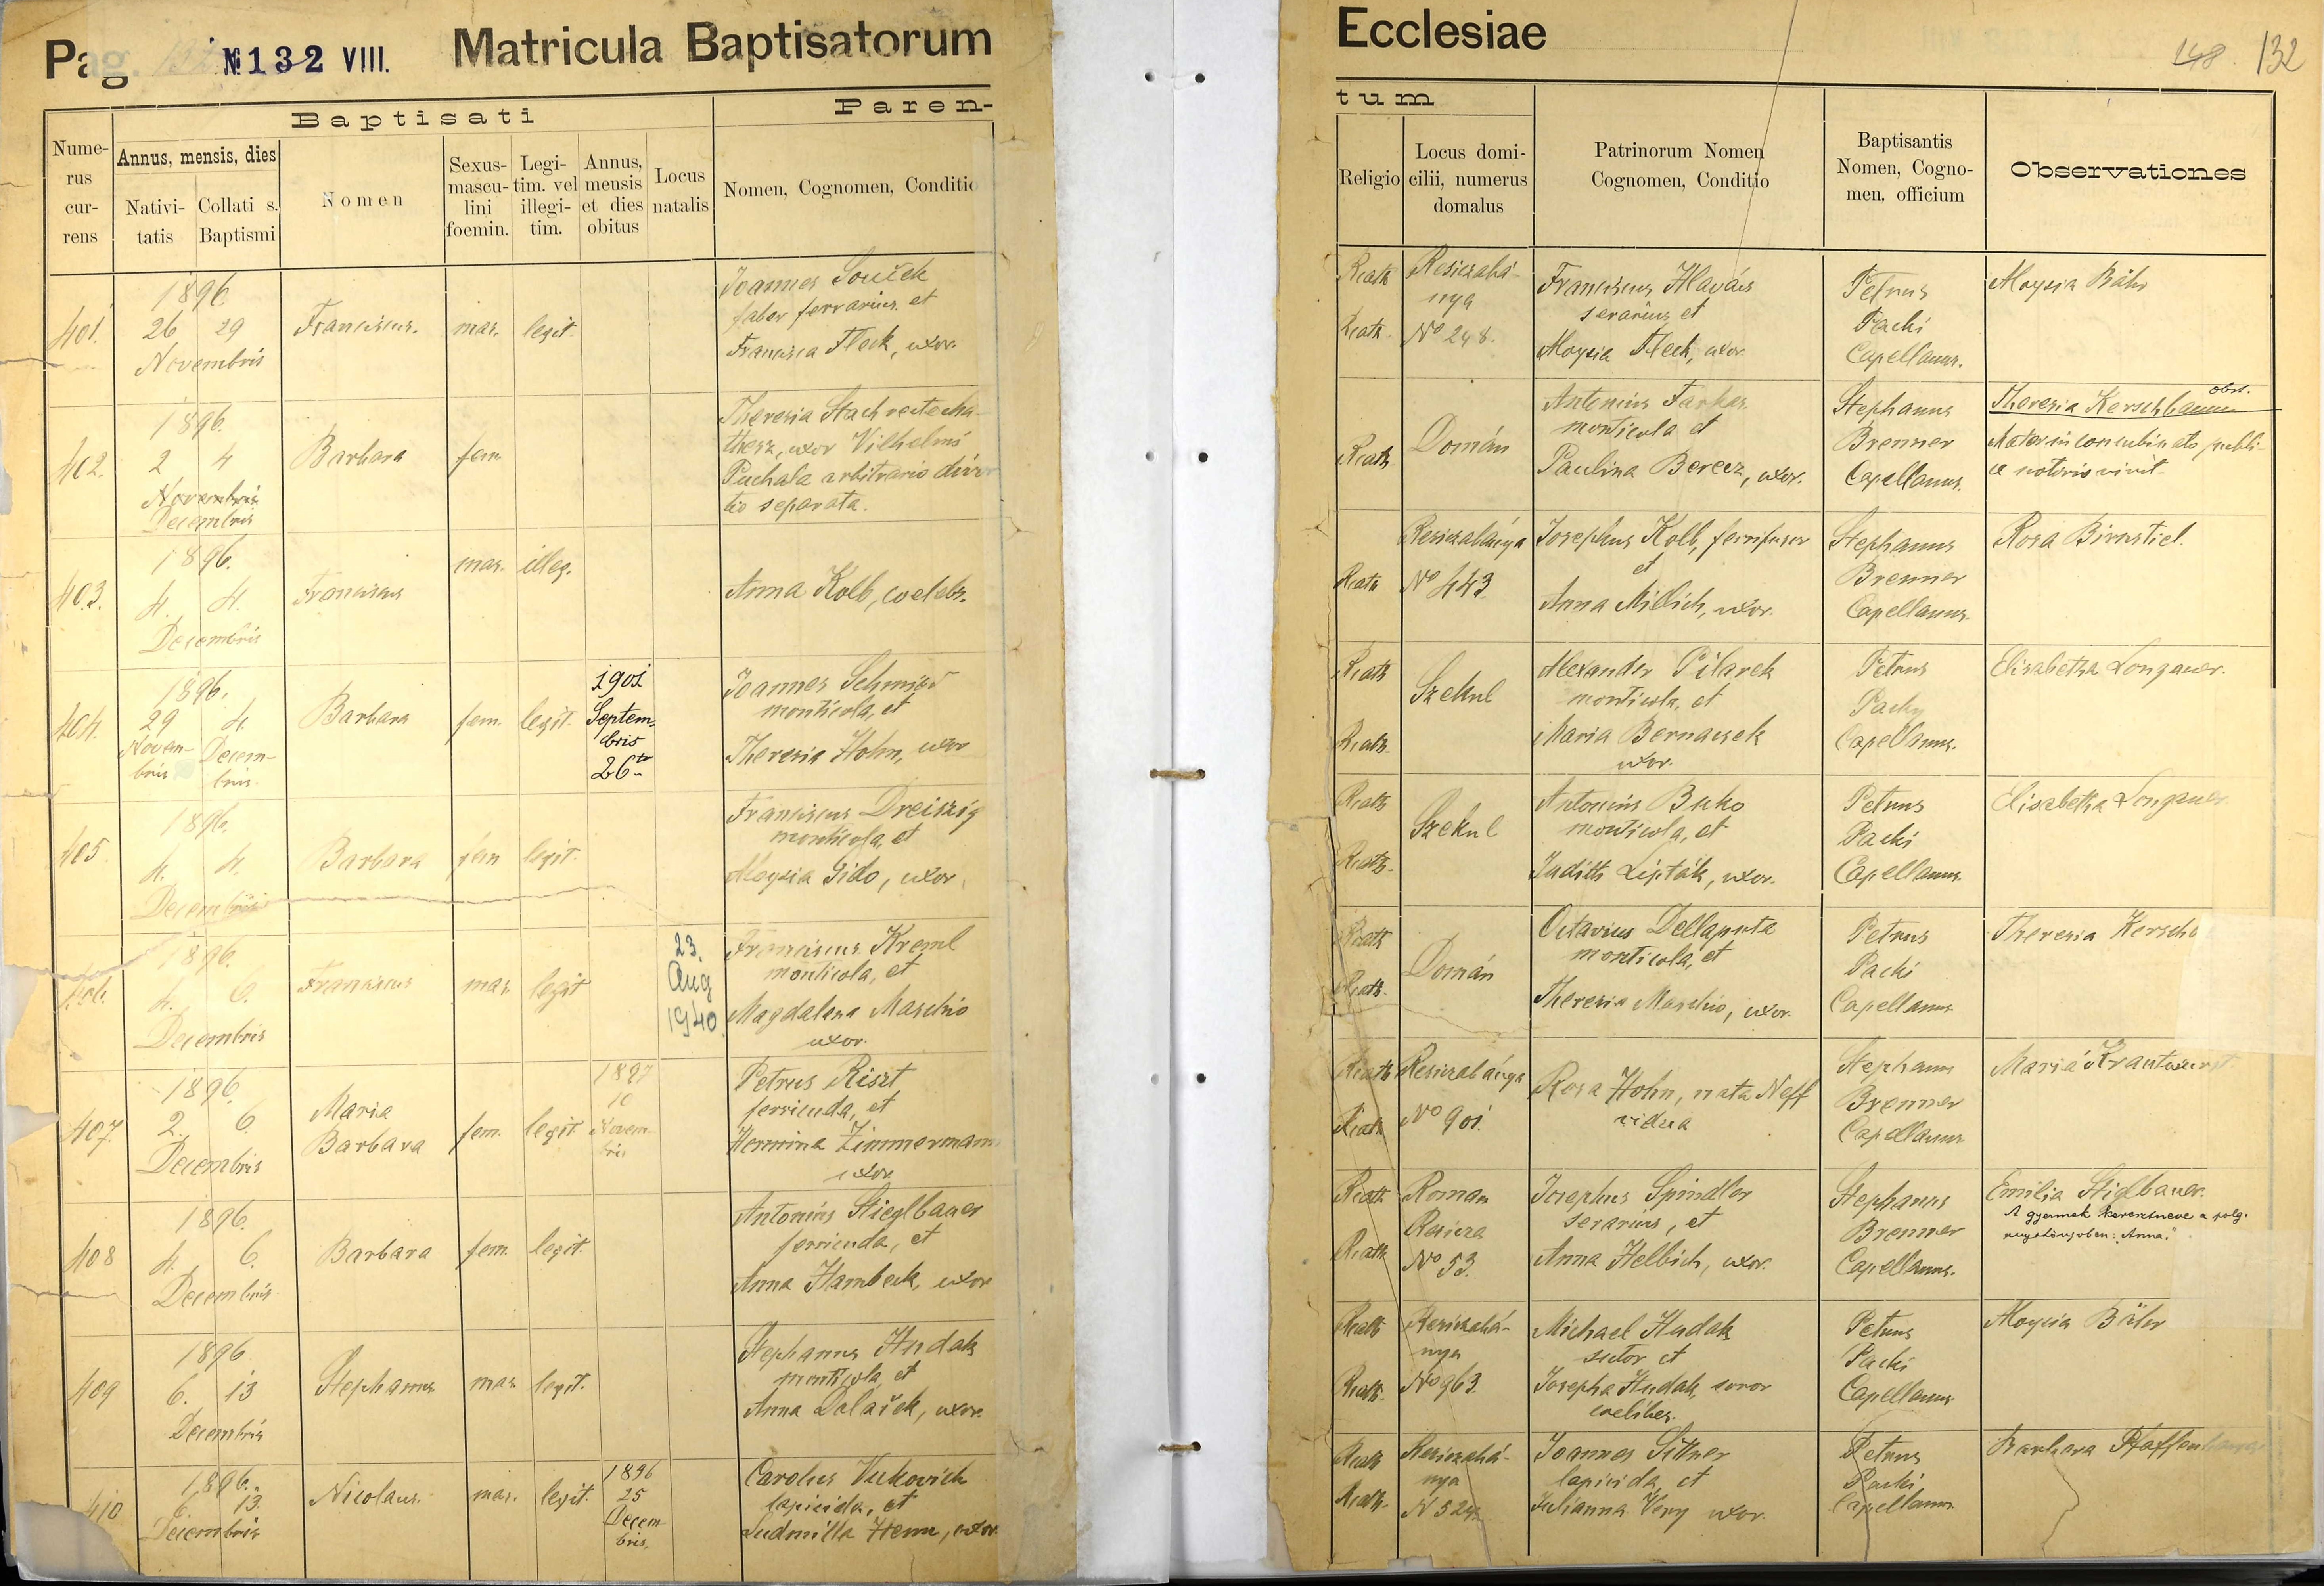 Pag. № 132 VIII. Matricula Baptisatorum
Ecclesiae
148. 132
Baptisati
Paren-
tum
Nume-
rus
cur-
rens
Annus, mensis, dies
Nativi-
tatis
Collati s.
Baptismi
Nomen
Sexus-
mascu-
lini
foemin.
Legi-
tim. vel
illegi-
tim.
Annus,
mensis
et dies
obitus
Locus
natalis
Nomen, Cognomen, Conditio
Religio
Locus domi-
cilii, numerus
domalus
Patrinorum Nomen
Cognomen, Conditio
Baptisantis
Nomen, Cogno-
men, officium
Observationes
401.
1896
26 29
Novembris
Franciscus.
mas.
legit.
Joannes Souček
faber ferrarius et
Francisca Fleck, uxor.
Rcath
Rcath.
Resiczabá-
nya
No 248.
Franciscus Hlavács
serarius et
Aloysia Fleck, uxor.
Petrus
Packi
Capellanus.
Aloysia Bähr
402.
1896.
2 4
Novembris
Decembris
Barbara
fem
Theresia
uxor Vilhelmi
Puchala arbitrario divor
tio separata.
Rcath
Domán
Antonius Farkas
monticola et
Paulina Berecz, uxor.
Stephanus
Brenner
Capellanus.
obst.
Theresia Kerschbaum
Mater in concubinatu publi-
ce notorio vivit.
403.
1896.
4. 4.
Decembris
Franciscus
mas.
illeg.
Anna Kolb, coelebs.
Rcath
Resiczabánya
No 443.
Josephus Kolb, ferrifusor
et
Anna Millich, uxor.
Stephanus
Brenner
Capellanus.
Rosa Birnstiel.
404.
1896.
29 4.
Novem- Decem-
bris bris.
Barbara
fem.
legit.
1901
Septem-
bris
26
Joannes Schmied
monticola, et
Theresia Hohn, uxor
Rcath
Rcath.
Szekul
Alexander Pilarek
monticola, et
Maria Bernacsek
uxor.
Petrus
Packy
Capellanus.
Elisabetha Longauer.
405.
1896.
4. 4.
Decembris
Barbara
fem
legit.
Franciscus Dreiszig
monticola, et
Aloysia Gido, uxor.
Rcath
Rcath.
Szekul
Antonius Buko
monticola, et
Judith Lipták, uxor.
Petrus
Packi
Capellanus.
Elisabetha Longauer
406.
1896.
4. 6.
Decembris
Franciscus
mas.
legit
23.
Aug
1940
Franciscus Kreml
monticola, et
Magdalena Maschio
uxor.
Rcath
Rcath.
Domán
Octavius Dellaputa
monticola, et
Theresia Maschio, uxor.
Petrus
Packi
Capellanus
Theresia Kersch
407.
1896.
2. 6.
Decembris
Maria
Barbara
fem.
legit
1897
10
Novem-
bris
Petrus Riszt
ferricuda, et
Hermina Zimmermann
uxor.
Rcath
Rcath
Resiczabánya
No 901.
Rosa Hohn, nata Neff
vidua
Stephanus
Brenner
Capellanus
Maria
408
1896.
4. 6.
Decembris
Barbara
fem.
legit.
Antonius Stieglbauer
ferricuda, et
Anna Hambeck, uxor
Rcath
Rcath
Roman
Resicza
No 53.
Josephus Spindler
serarius, et
Anna Helbich, uxor.
Stephanus
Brenner
Capellanus.
Emilia Stiglbauer.
A gyermek keresztneve a polg.
anyakönyvben: "Anna."
409
1896
6. 13
Decembris
Stephanus
mas
legit.
Stephanus Hudak
monticola, et
Anna Dolaček, uxor.
Rcath
Rcath.
Resiczabá-
nya
No 963.
Michael Hudak
sutor et
Josepha Hudak, soror
coelibes.
Petrus
Packi
Capellanus
Aloysia Bähr
410
1896.
6. 13.
Decembris
Nicolaus.
mas.
legit.
1896
25
Decem-
bris.
Carolus Vukovich
lapicida, et
Ludmilla Hemm, uxor.
Rcath
Rcath.
Resiczabá-
nya
Joannes Sittner
lapicida, et
Julianna Very uxor.
Petrus
Packi
Capellanus
Barbara Pfaffenhauser